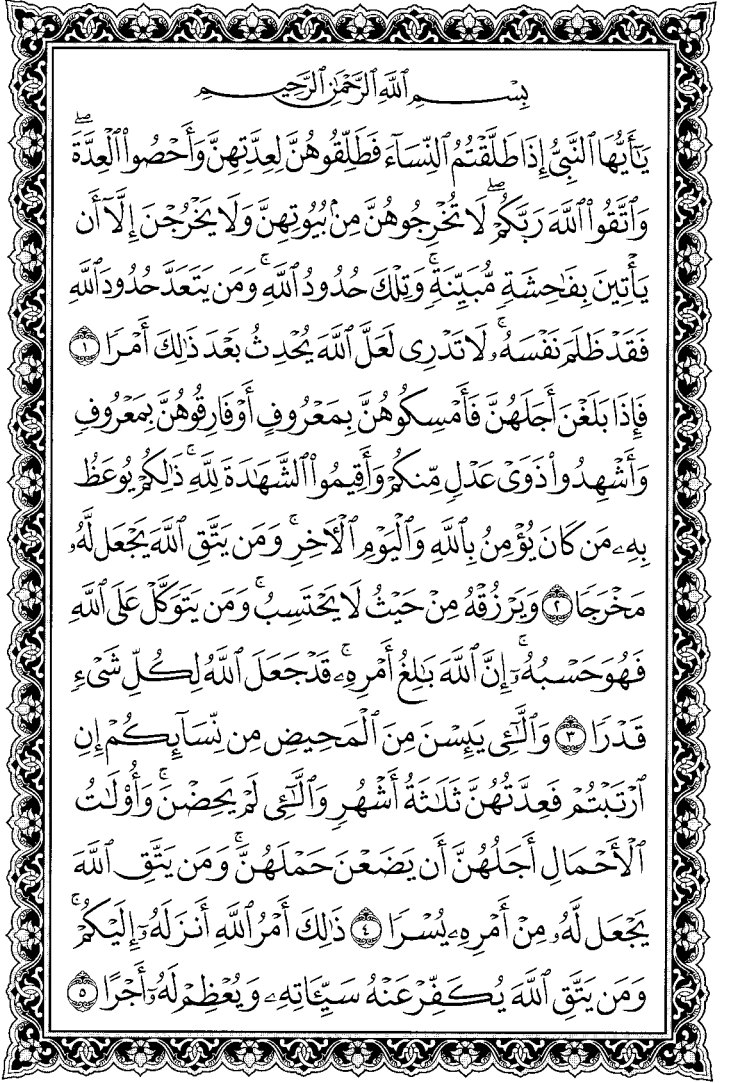 بِسْمِ ٱللَّهِ ٱلرَّحْمَٰنِ ٱلرَّحِيمِ
يَٰٓأَيُّهَا ٱلنَّبِىُّ إِذَا طَلَّقْتُمُ ٱلنِّسَآءَ فَطَلِّقُوهُنَّ لِعِدَّتِهِنَّ وَأَحْصُوا۟ ٱلْعِدَّةَ ۖ
وَٱتَّقُوا۟ ٱللَّهَ رَبَّكُمْ ۖ لَا تُخْرِجُوهُنَّ مِنۢ بُيُوتِهِنَّ وَلَا يَخْرُجْنَ إِلَّآ أَن
يَأْتِينَ بِفَٰحِشَةٍ مُّبَيِّنَةٍ ۚ وَتِلْكَ حُدُودُ ٱللَّهِ ۚ وَمَن يَتَعَدَّ حُدُودَ ٱللَّهِ
فَقَدْ ظَلَمَ نَفْسَهُۥ ۚ لَا تَدْرِى لَعَلَّ ٱللَّهَ يُحْدِثُ بَعْدَ ذَٰلِكَ أَمْرًا ١
فَإِذَا بَلَغْنَ أَجَلَهُنَّ فَأَمْسِكُوهُنَّ بِمَعْرُوفٍ أَوْ فَارِقُوهُنَّ بِمَعْرُوفٍ
وَأَشْهِدُوا۟ ذَوَىْ عَدْلٍ مِّنكُمْ وَأَقِيمُوا۟ ٱلشَّهَٰدَةَ لِلَّهِ ۚ ذَٰلِكُمْ يُوعَظُ
بِهِۦ مَن كَانَ يُؤْمِنُ بِٱللَّهِ وَٱلْيَوْمِ ٱلْءَاخِرِ ۚ وَمَن يَتَّقِ ٱللَّهَ يَجْعَل لَّهُۥ
مَخْرَجًا ٢ وَيَرْزُقْهُ مِنْ حَيْثُ لَا يَحْتَسِبُ ۚ وَمَن يَتَوَكَّلْ عَلَى ٱللَّهِ
فَهُوَ حَسْبُهُۥٓ ۚ إِنَّ ٱللَّهَ بَٰلِغُ أَمْرِهِۦ ۚ قَدْ جَعَلَ ٱللَّهُ لِكُلِّ شَىْءٍ
قَدْرًا ٣ وَٱلَّٰٓـِٔى يَئِسْنَ مِنَ ٱلْمَحِيضِ مِن نِّسَآئِكُمْ إِنِ
ٱرْتَبْتُمْ فَعِدَّتُهُنَّ ثَلَٰثَةُ أَشْهُرٍ وَٱلَّٰٓـِٔى لَمْ يَحِضْنَ ۚ وَأُو۟لَٰتُ
ٱلْأَحْمَالِ أَجَلُهُنَّ أَن يَضَعْنَ حَمْلَهُنَّ ۚ وَمَن يَتَّقِ ٱللَّهَ
يَجْعَل لَّهُۥ مِنْ أَمْرِهِۦ يُسْرًا ٤ ذَٰلِكَ أَمْرُ ٱللَّهِ أَنزَلَهُۥٓ إِلَيْكُمْ ۚ
وَمَن يَتَّقِ ٱللَّهَ يُكَفِّرْ عَنْهُ سَيِّـَٔاتِهِۦ وَيُعْظِمْ لَهُۥٓ أَجْرًا ٥